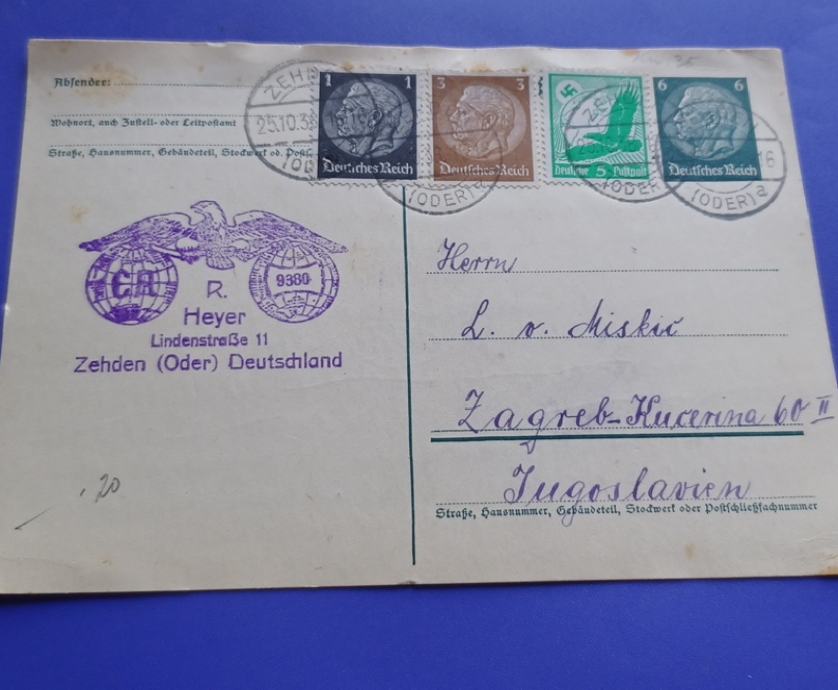 Absender:
Wohnort, auch Zustell- oder Leitpostamt
Straße, Hausnummer, Gebäudeteil, Stockwerk od.
25.10.3
(ODER)a
(ODER
(ODER)a
16
1 1
Deutsches Reich
3 3
Deutsches Reich
Deutsche 5 Luftpost
6 6
Deutsches Reich
9380
R.
Heyer
Lindenstraße 11
Zehden (Oder) Deutschland
Herrn
L. v. Miskić
Zagreb-Kucerina 60 II
Jugoslavien
Straße, Hausnummer, Gebäudeteil, Stockwerk oder Postschließfachnummer
20